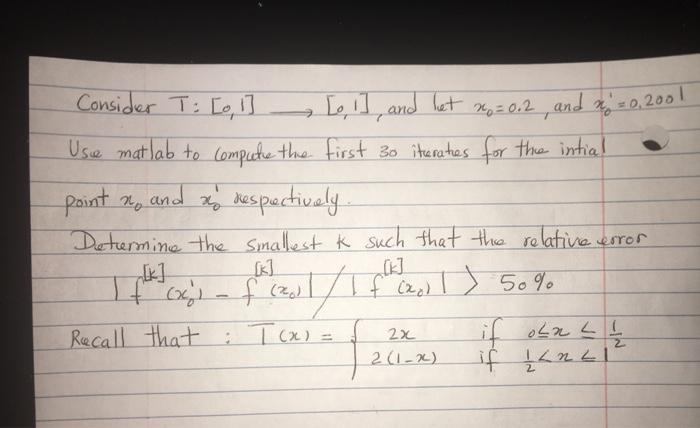 Consider T: [0,1] → [0,1], and let x₀ = 0.2, and x₀' = 0,2001
Use matlab to compute the first 30 iterates for the intial
point x₀ and x₀' respectively.
Determine the smallest k such that the relative error
| f^[k](x₀') - f^[k](x₀) | / | f^[k](x₀) | > 50%
Recall that : T(x) = { 2x if 0≤x≤ 1/2
2(1-x) if 1/2<x≤1